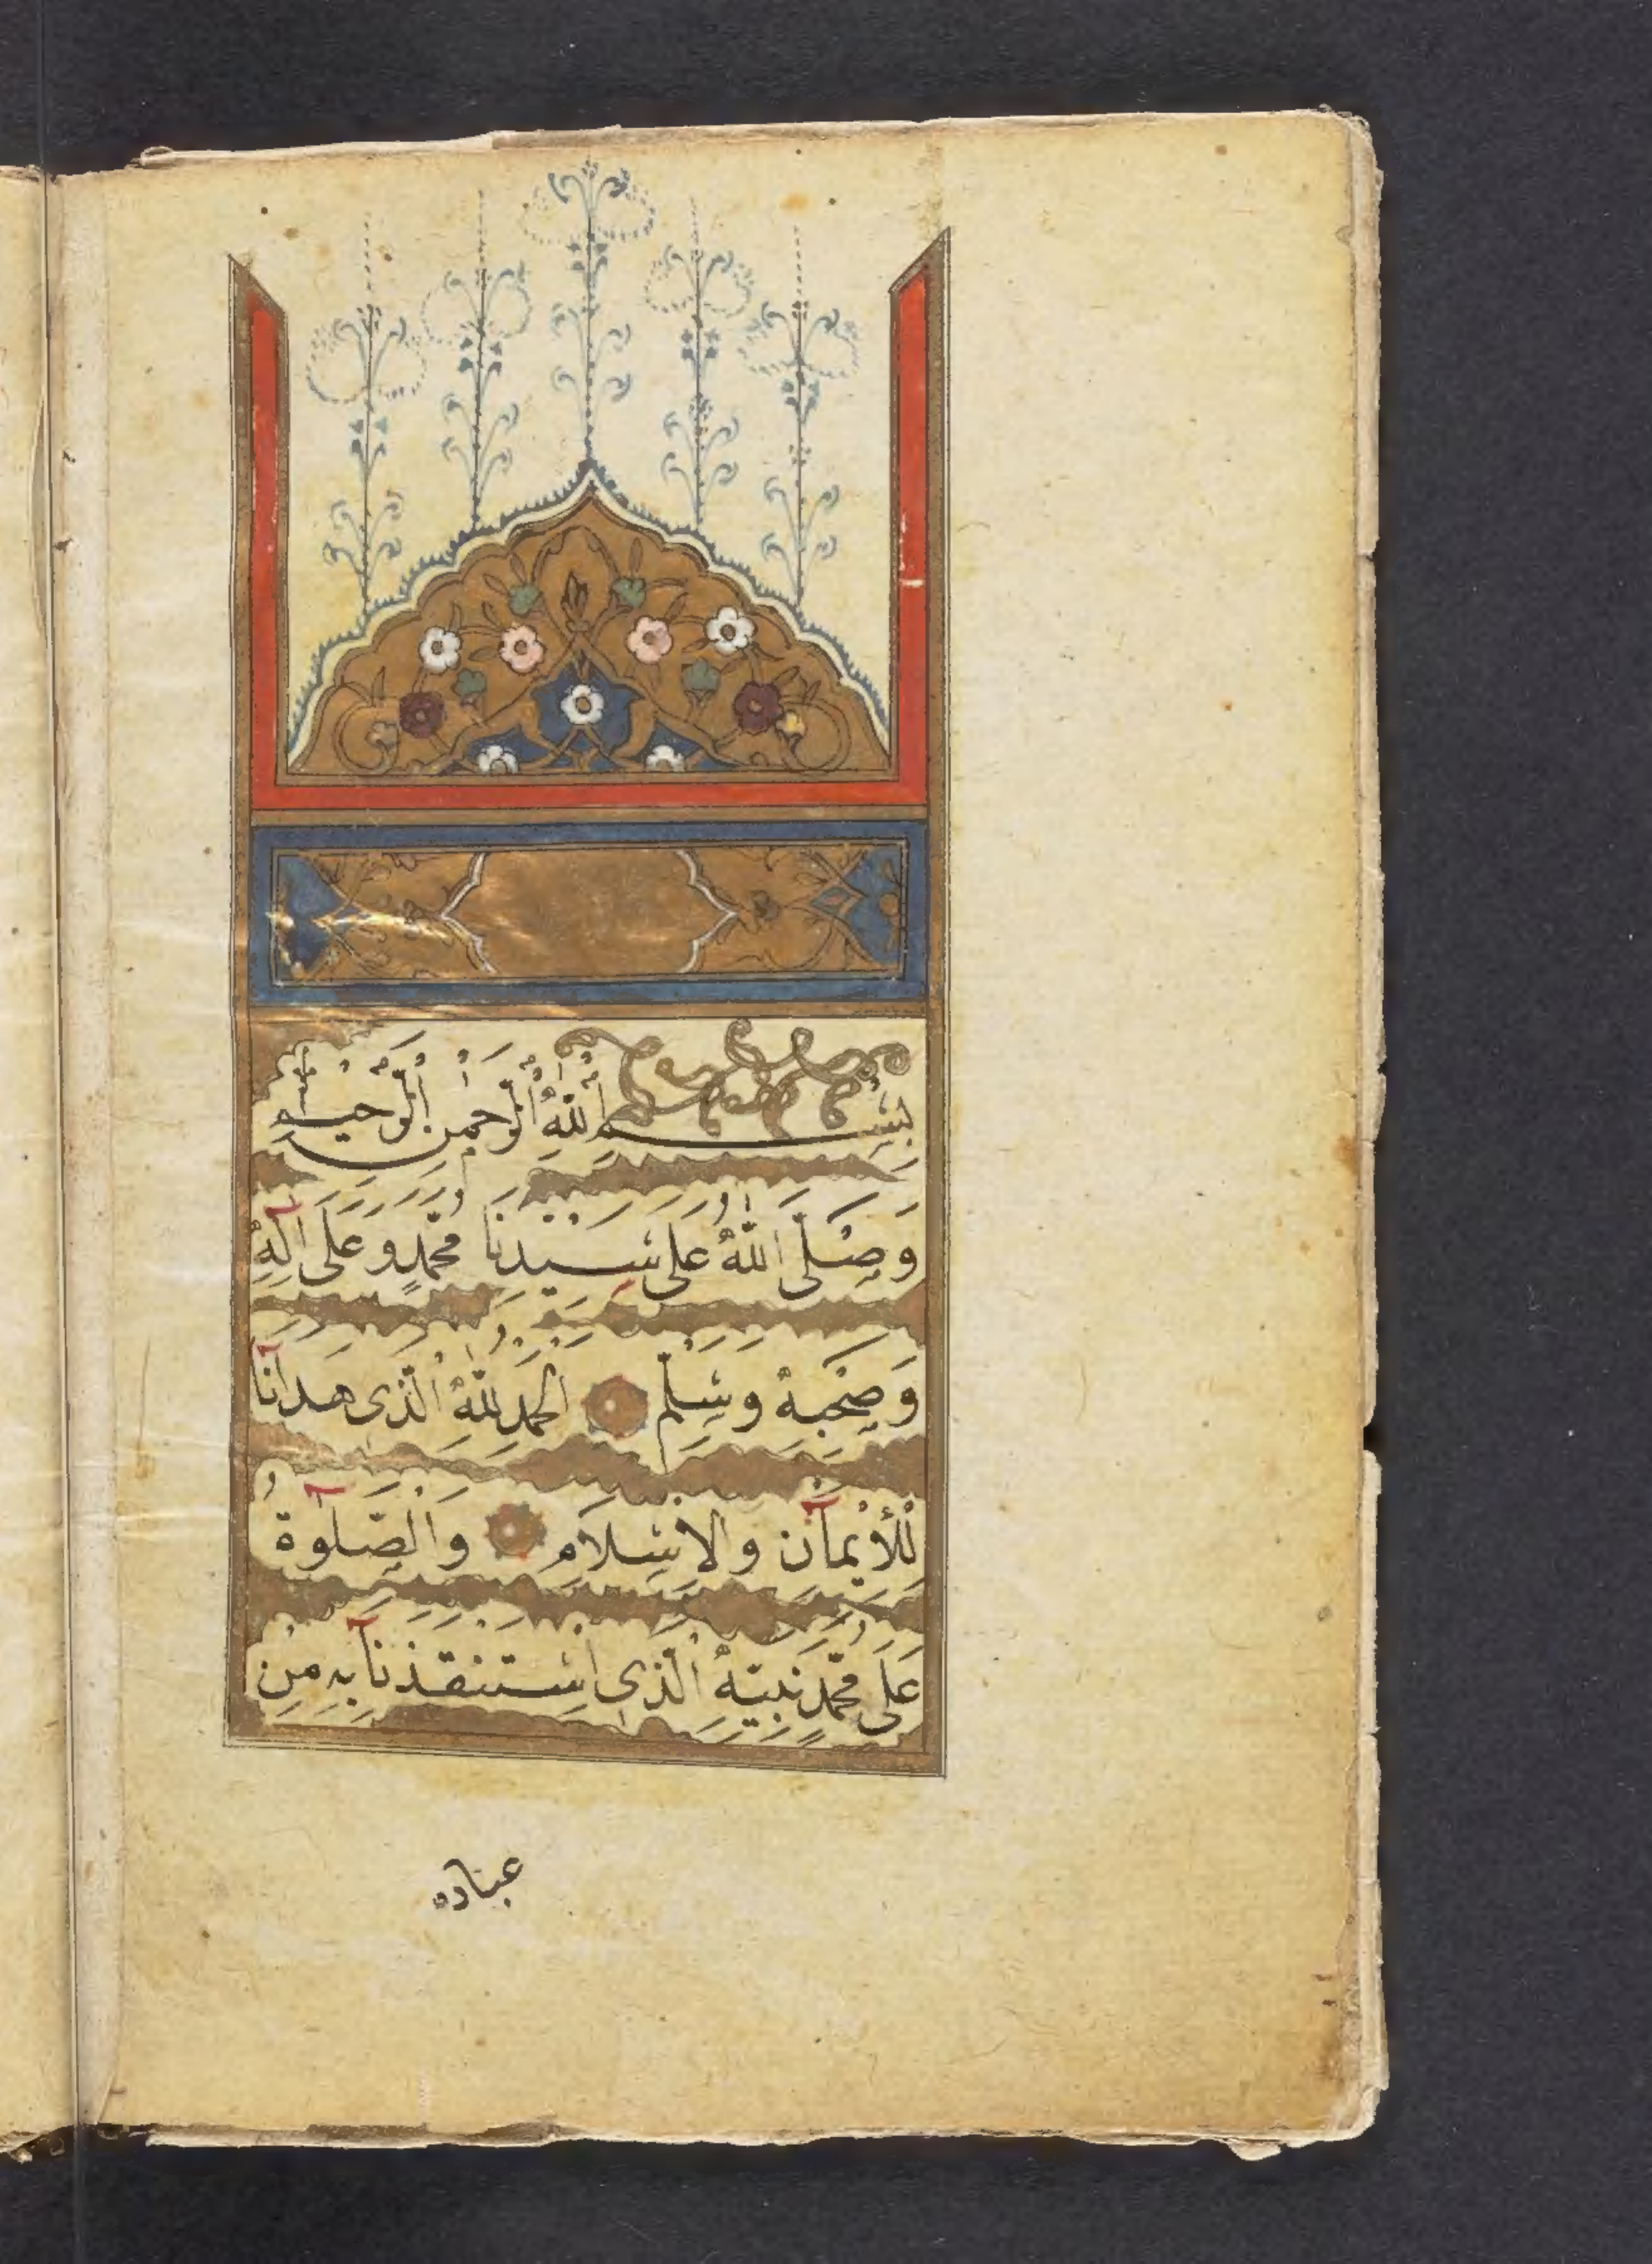 بِسْمِ اللّٰهِ الرَّحْمٰنِ الرَّحِيْمِ
وَصَلَّى اللّٰهُ عَلَى سَيِّدِنَا مُحَمَّدٍ وَعَلَى آلِهِ
وَصَحْبِهْ وَسَلِّمْ الْحَمْدُ لِلّٰهِ الَّذِى هَدَانَآ
لِلْأِيْمَآنِ وَالْاِسْلَامِ وَالْصَّلٰوةُ
عَلَى مُحَمَّدٍ نَبِيِّهْ الَّذِى اسْتَنْقَذَنَآ بِهِ مِنْ
عبناده